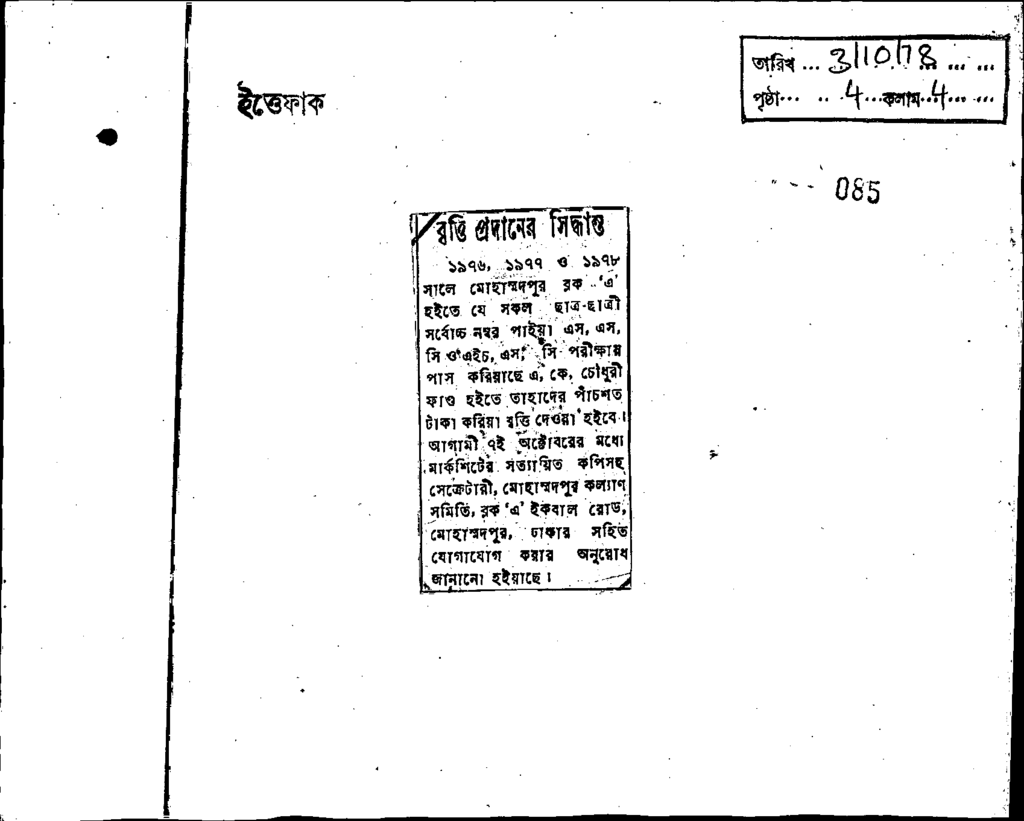 ইত্তেফাক
তারিখ ... 3/10/78 ... ...
পৃষ্ঠা... .. 4 ...কলাম.. 4 ... ...
085
বৃত্তি প্রদানের সিদ্ধান্ত
১৯৭৬, ১৯৭৭ ও ১৯৭৮
সালে মোহাম্মদপুর ব্লক 'এ'
হইতে যে সকল ছাত্র-ছাত্রী
সর্বোচ্চ নম্বর পাইয়া এস, এস,
সি ও এইচ, এস, সি পরীক্ষায়
পাস করিয়াছে এ, কে, চৌধুরী
ফাণ্ড হইতে তাহাদের পাঁচশত
টাকা করিয়া বৃত্তি দেওয়া হইবে।
আগামী ৭ই অক্টোবরের মধ্যে
মার্কশিটের সত্যায়িত কপিসহ
সেক্রেটারী, মোহাম্মদপুর কল্যাণ
সমিতি, ব্লক 'এ' ইকবাল রোড,
মোহাম্মদপুর, ঢাকার সহিত
যোগাযোগ করার অনুরোধ
জানানো হইয়াছে।